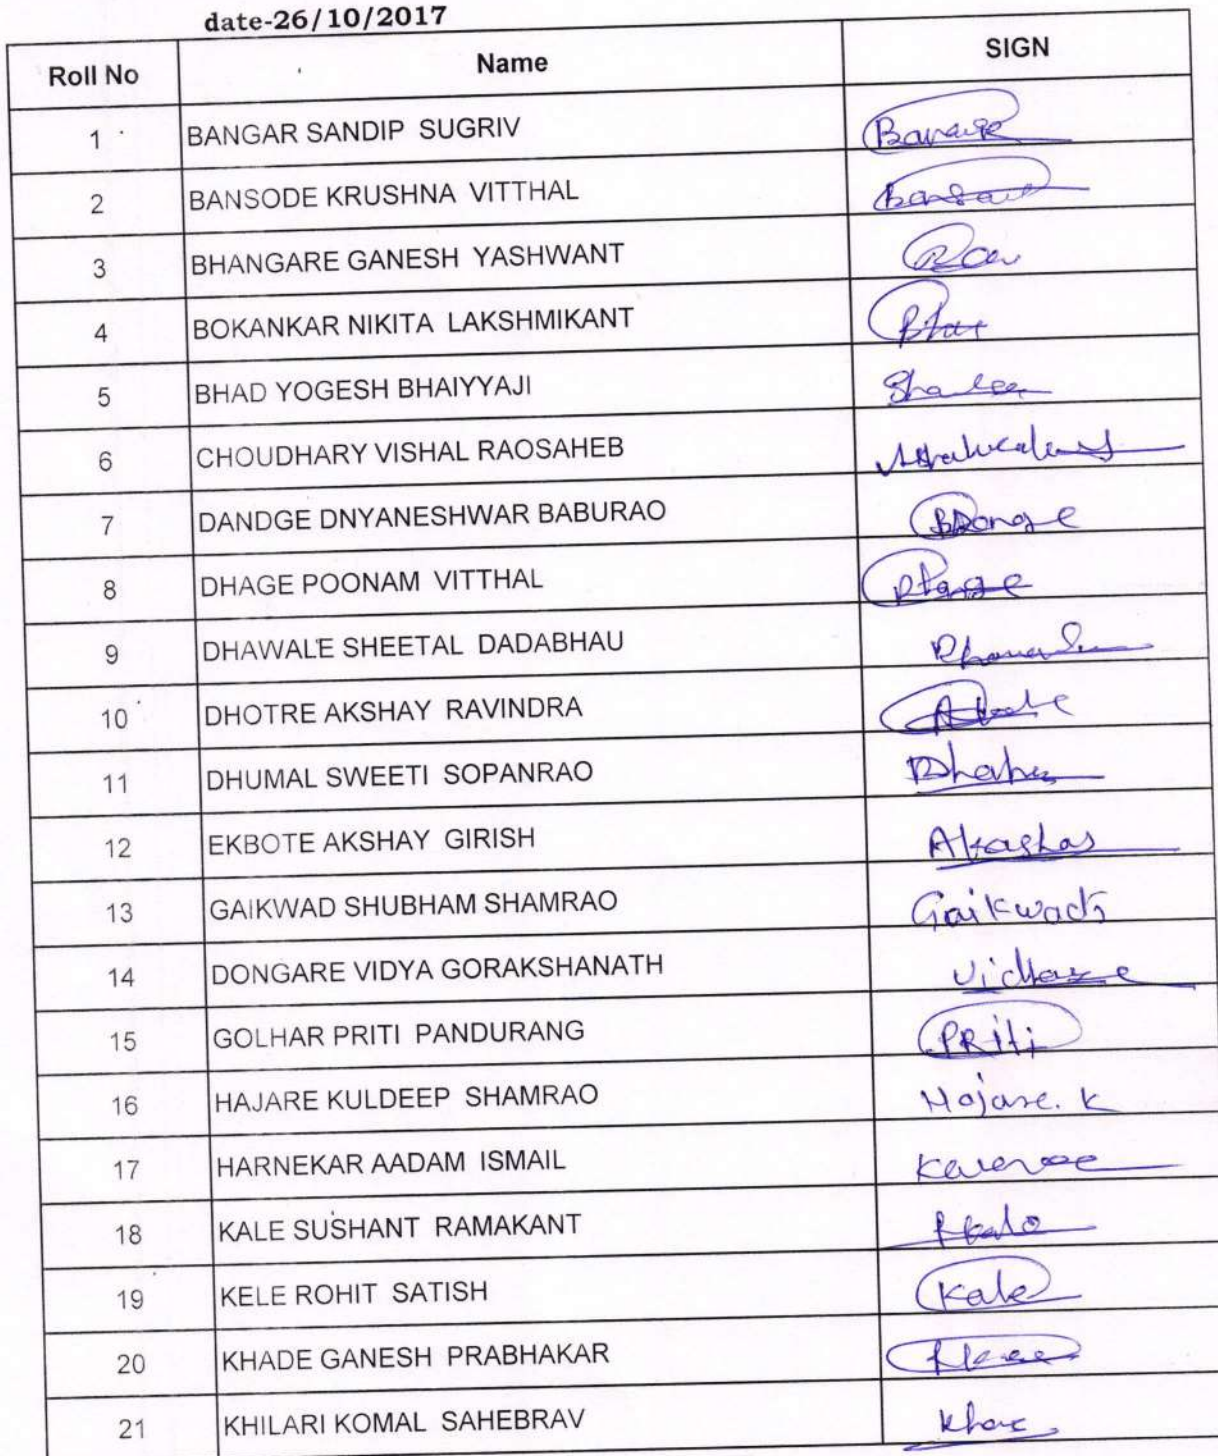 date-26/10/2017
Roll No Name SIGN
1 BANGAR SANDIP SUGRIV
2 BANSODE KRUSHNA VITTHAL
3 BHANGARE GANESH YASHWANT
4 BOKANKAR NIKITA LAKSHMIKANT
5 BHAD YOGESH BHAIYYAJI
6 CHOUDHARY VISHAL RAOSAHEB
7 DANDGE DNYANESHWAR BABURAO
8 DHAGE POONAM VITTHAL
9 DHAWALE SHEETAL DADABHAU
10 DHOTRE AKSHAY RAVINDRA
11 DHUMAL SWEETI SOPANRAO
12 EKBOTE AKSHAY GIRISH
13 GAIKWAD SHUBHAM SHAMRAO
14 DONGARE VIDYA GORAKSHANATH
15 GOLHAR PRITI PANDURANG PRiti
16 HAJARE KULDEEP SHAMRAO Hajare. K
17 HARNEKAR AADAM ISMAIL
18 KALE SUSHANT RAMAKANT
19 KELE ROHIT SATISH Kale
20 KHADE GANESH PRABHAKAR
21 KHILARI KOMAL SAHEBRAV